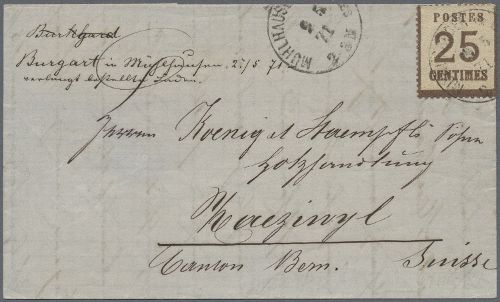 Burkhard
Burgart in Mülhausen, 25/5 71
verlangt bestellte Laden.
MÜHLHAUS
71
POSTES
25
CENTIMES
Herren Koenig & Staempfli Söhne
Holzhandlung
Maeziwyl
Canton Bern. Suisse